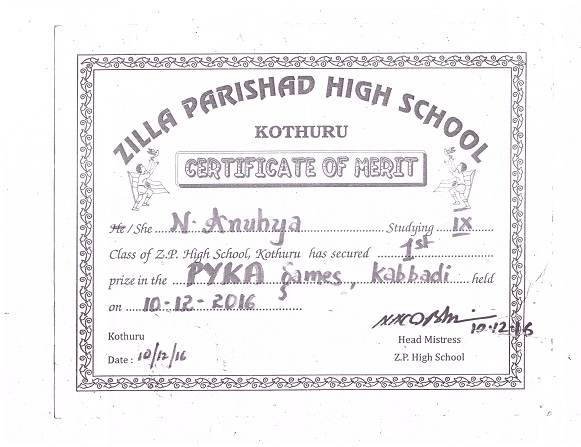 ZILLA PARISHAD HIGH SCHOOL
KOTHURU
CERTIFICATE OF MERIT
He / She N. Anuhya Studying IX
Class of Z.P. High School, Kothuru has secured 1st
prize in the PYKA games, Kabbadi held
on 10-12-2016
Kothuru
10-12-16
Head Mistress
Date : 10/12/16
Z.P. High School